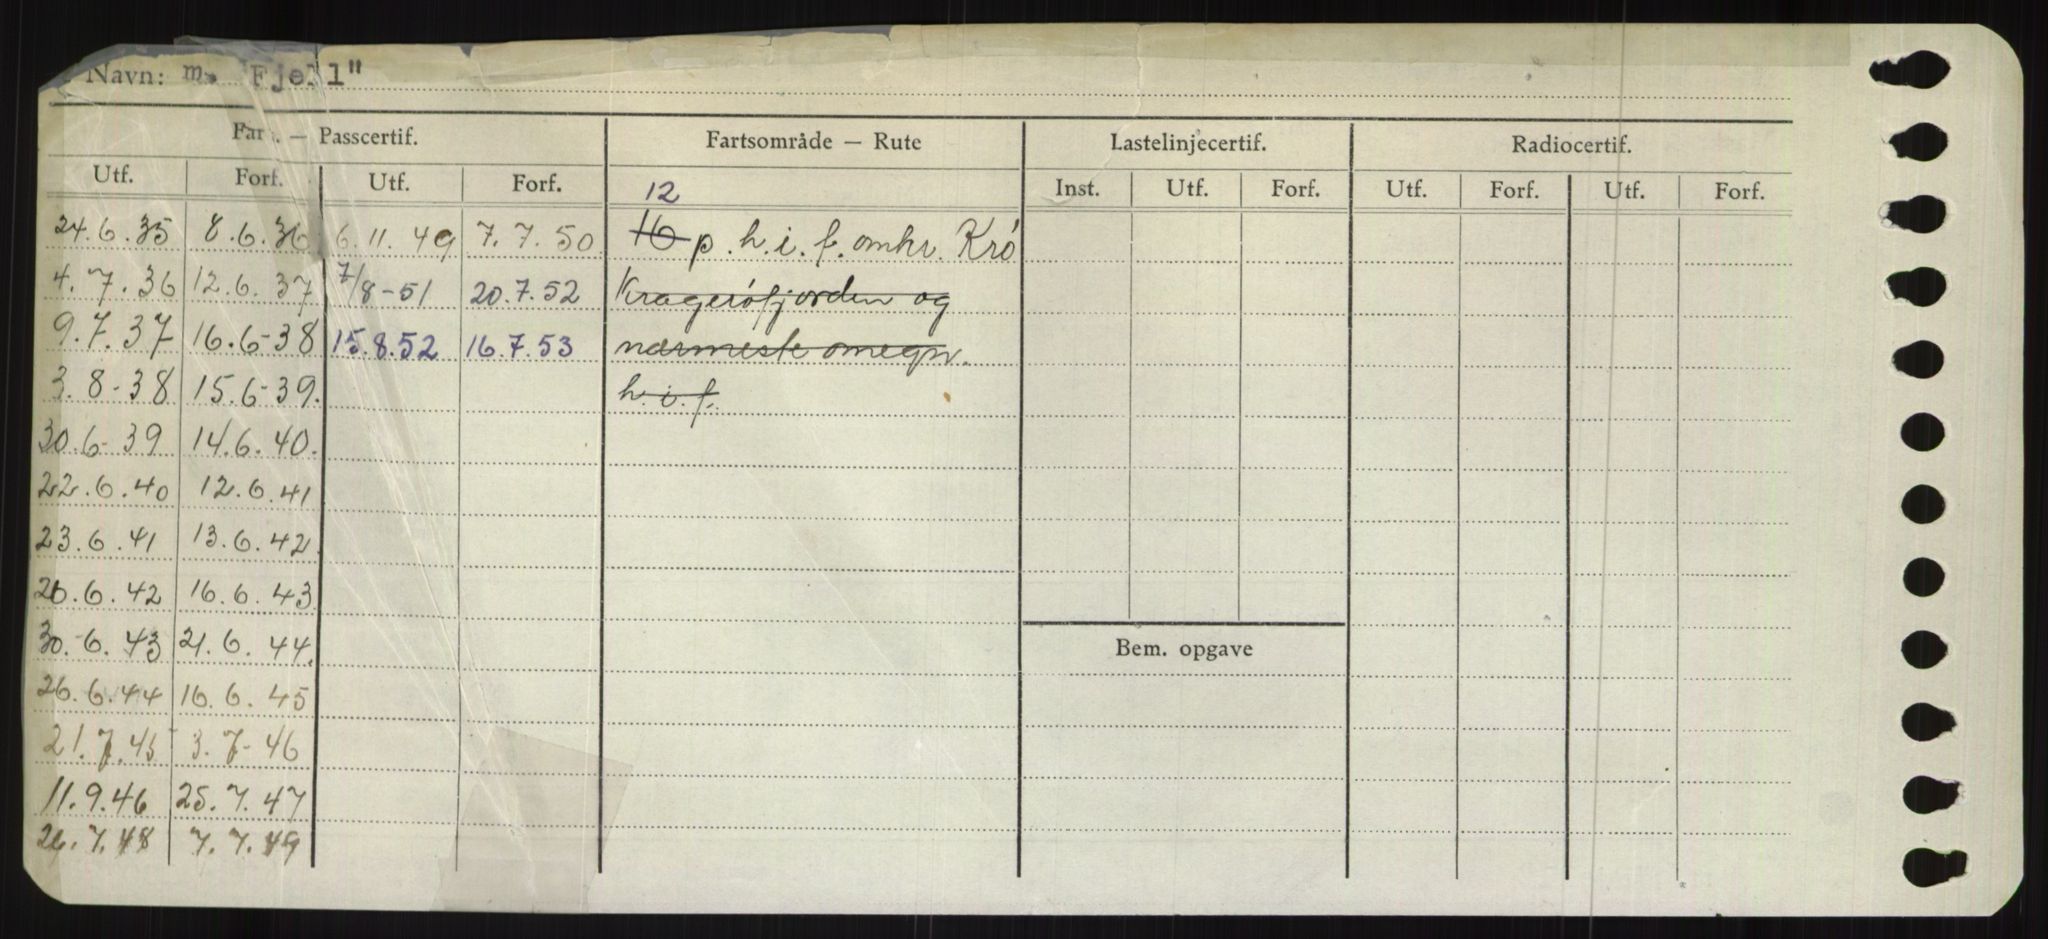 Navn: m. "Fjell"
Fart. — Passcertif. Fartsområde — Rute Lastelinjecertif. Radiocertif.
Utf. Forf. Utf. Forf. 12 Inst. Utf. Forf. Utf. Forf. Utf. Forf.
24.6.35 8.6.36 6.11.49 7.7.50 16 p. h.i.f. omkr. Krö
4.7.36 12.6.37 7/8-51 20.7.52 Kragerøfjorden og
9.7.37 16.6-38 15.8.52 16.7.53 nærmeste omegn.
3.8-38 15.6-39. h.i.f.
30.6-39 14.6.40.
22.6.40 12.6.41
23.6.41 13.6.42
26.6.42 16.6.43
30.6.43 21.6.44. Bem. opgave
26.6.44 16.6.45
21.7.45 3.7-46
11.9.46 25.7.47
26.7.48 7.7.49